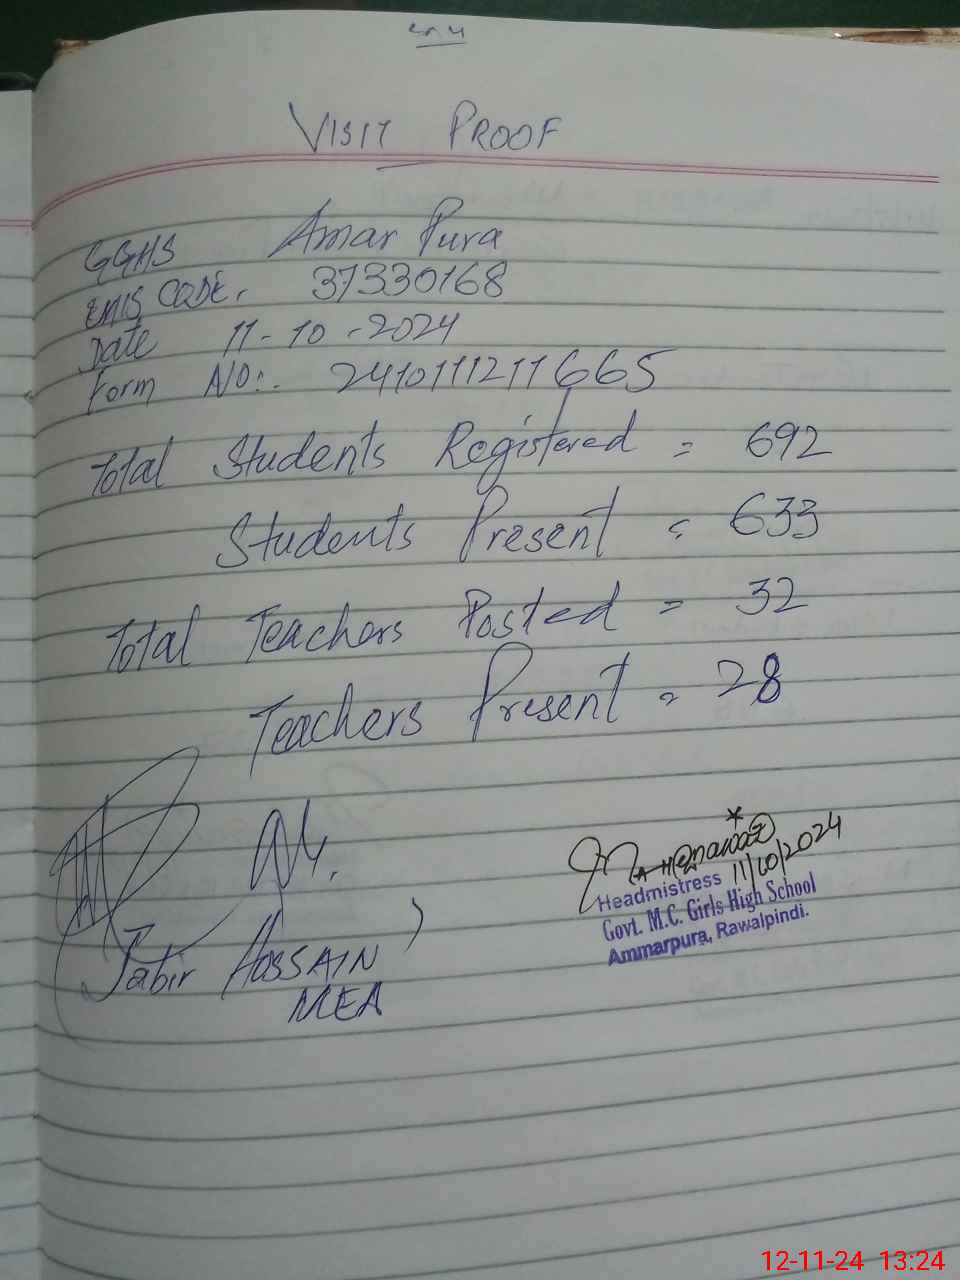 VISIT PROOF
GGHS Amar Pura
EMIS CODE. 37330168
Date 11-10-2024
Form NO:. 2410111211665
Total Students Registered = 692
Students Present = 633
Total Teachers Posted = 32
Teachers Present = 28
11/10/2024
Headmistress
Govt. M.C. Girls High School
Ammarpura, Rawalpindi.
Jabir HOSSAIN
MEA
12-11-24 13:24